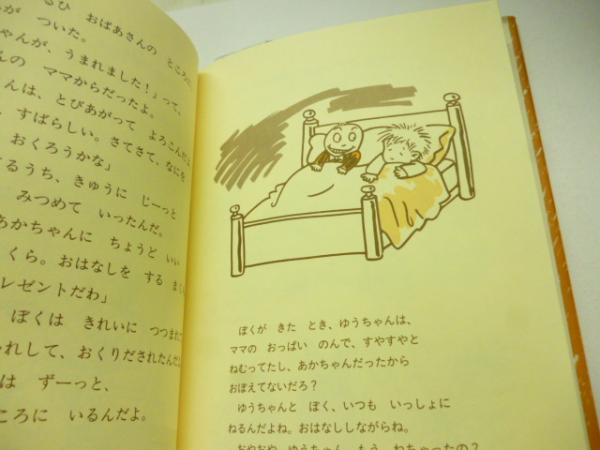 るひ　おばあさんの　ところに
が　ついた。
ちゃんが、うまれました！」って、
んの　ママからだったよ。
んは、とびあがって　よろこんだよ
すばらしい。さてさて、なにを
おくろうかな」
てるうち、きゅうに　じーっと
みつめて　いったんだ。
あかちゃんに　ちょうど　いい
くら。おはなしを　する　まく
レゼントだわ」
ぼくは　きれいに　つつまれて
れして、おくりだされたんだよ
は　ずーっと、
ころに　いるんだよ。
ぼくが　きた　とき、ゆうちゃんは、
ママの　おっぱい　のんで、すやすやと
ねむってたし、あかちゃんだったから
おぼえてないだろ？
ゆうちゃんと　ぼく、いつも　いっしょに
ねるんだよね。おはなししながらね。
おやおや、ゆうちゃん、もう　ねちゃったの？